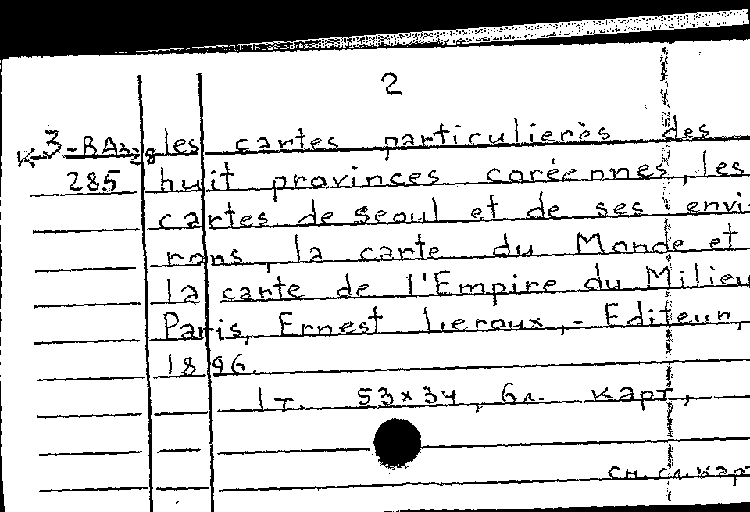 2
K3-RA328 les cartes particulierès des
285 huit provinces coréennes, les
cartes de Seoul et de ses envi-
rons, la carte du Monde et
la carte de l'Empire du Milieu
Paris, Ernest Leroux, - Editeur,
1896.
1т. 53×34, 6л. карт,
см. сл. карт